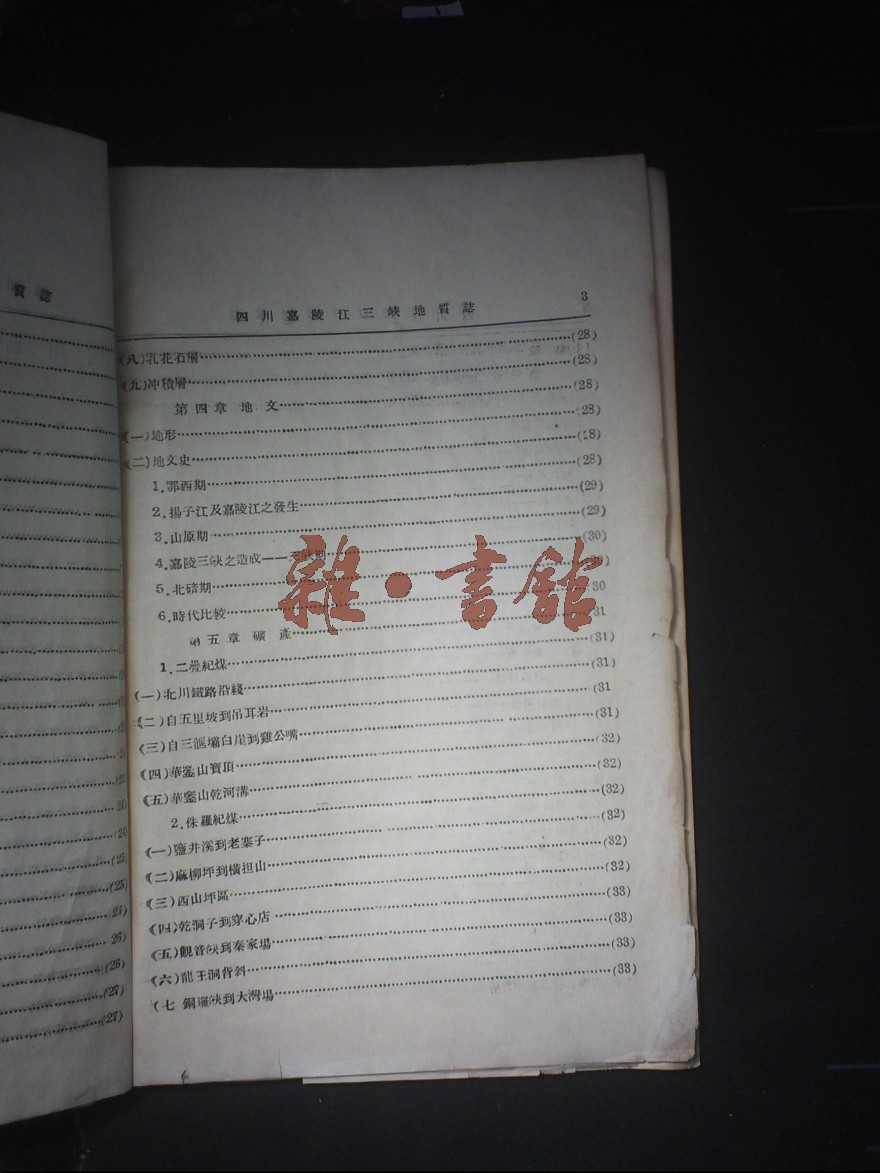 質誌
四川嘉陵江三峽地質誌 3
(八)乳花石層(28)
(九)冲積層(28)
第四章 地文(28)
(一)地形(28)
(二)地文史(28)
1.鄂西期(28)
2.揚子江及嘉陵江之發生(29)
3.山原期(29)
4.嘉陵三峽之造成——(30)
5.北碚期
6.時代比較30
第五章 礦產31
1.二疊紀煤(31)
(一)北川鐵路沿綫(31)
(二)自五里坡到吊耳岩(31
(三)自三滙壩白崖到雞公嘴(31)
(四)華鎣山寶頂(32)
(五)華鎣山乾河溝(32)
2.侏羅紀煤(32)
(一)鹽井溪到老寨子(32)
(二)麻柳坪到橫担山(32)
(三)西山坪區(32)
(四)乾洞子到穿心店(33)
(五)觀音峽到秦家場(33)
(六)龍王洞背斜(33)
(七 銅鑼峽到大灣場(33)
雜·書館
(25)
(25)
26)
(26)
(27)
(27)